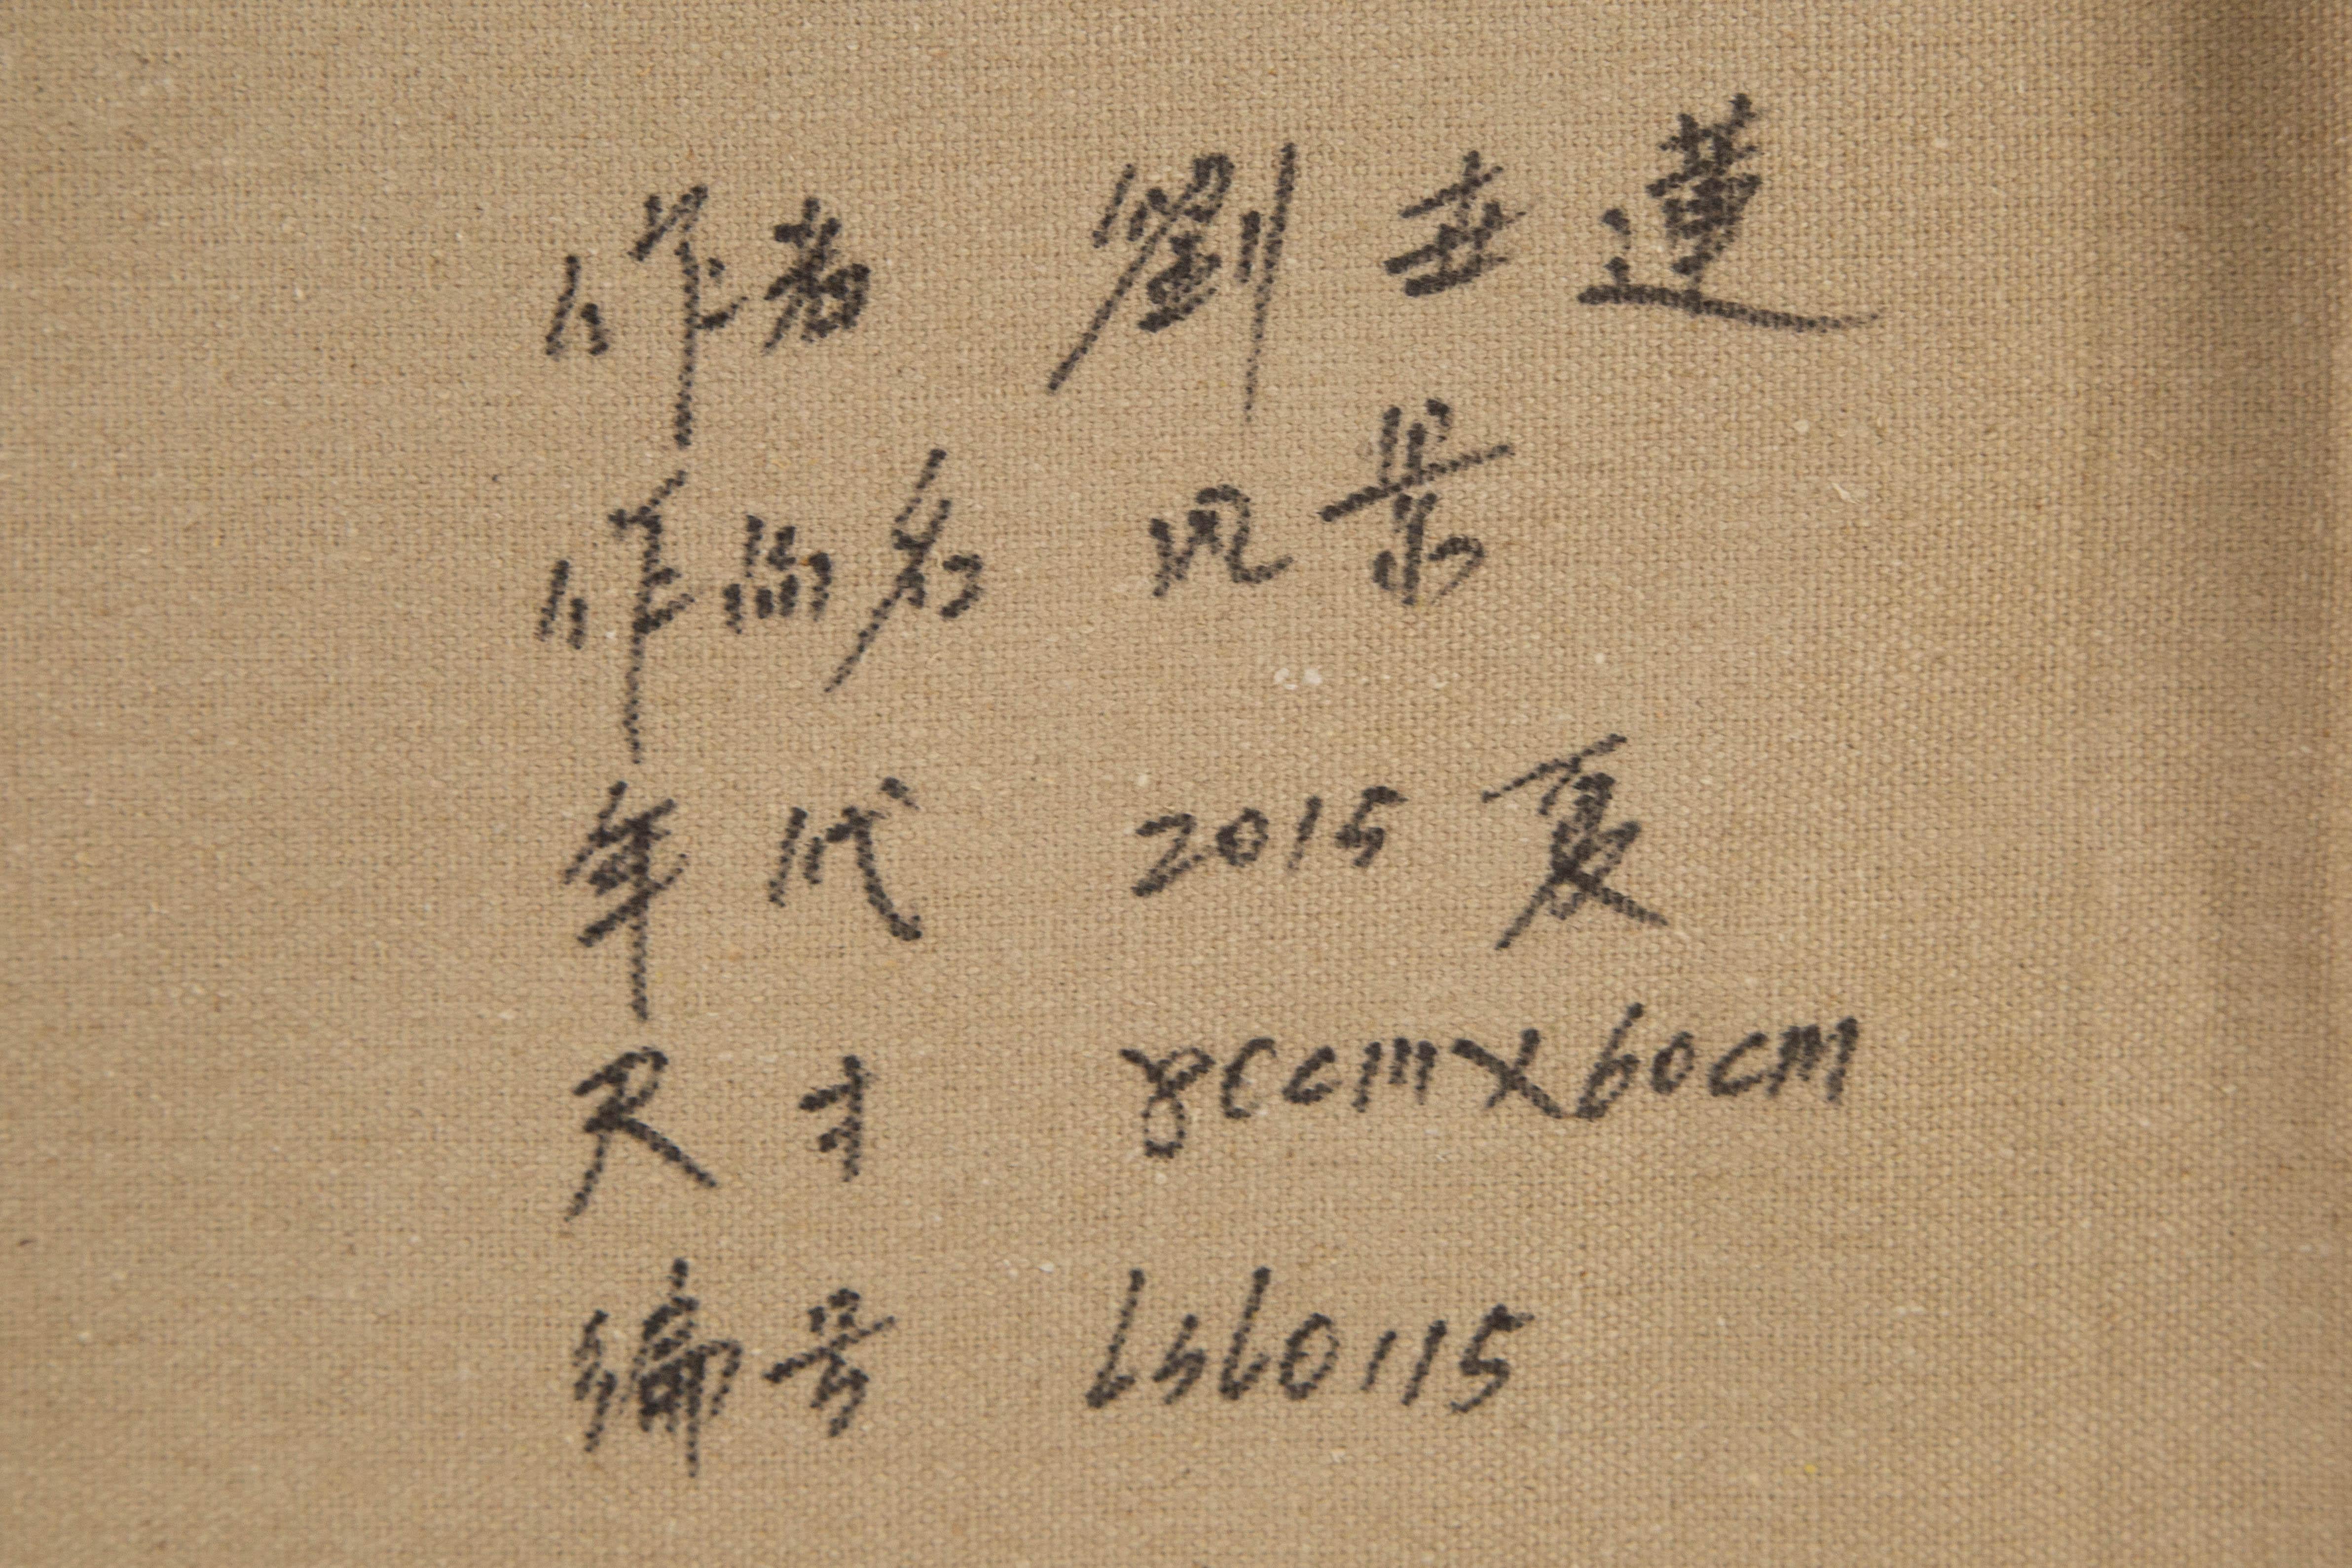 作者 劉世蓮
作品名 风景
年代 2015夏
尺寸 80cm×60cm
编号 LSL0115